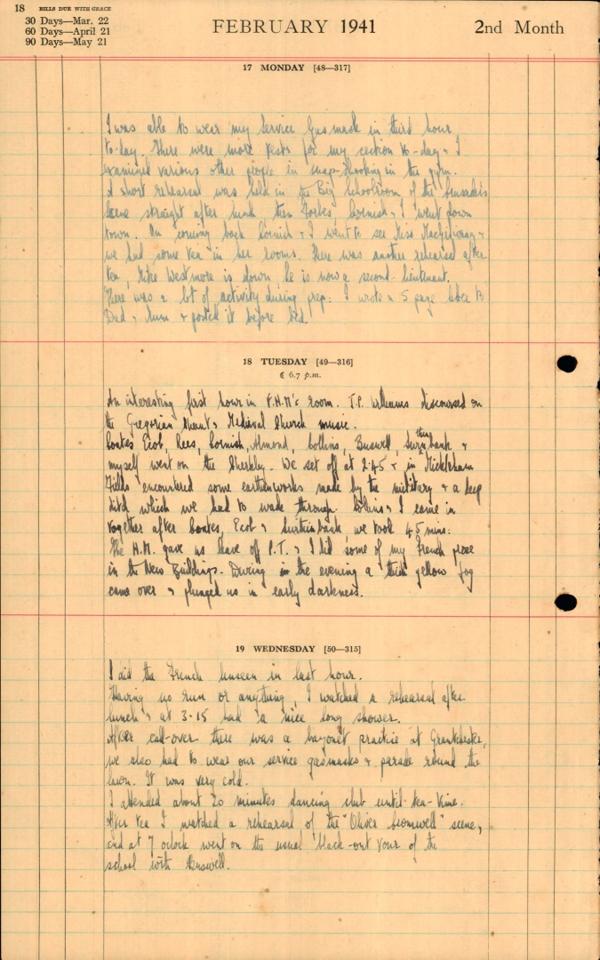 18 BILLS DUE WITH GRACE
30 Days—Mar. 22
60 Days—April 21
90 Days—May 21
FEBRUARY 1941
2nd Month
17 MONDAY [48—317]
I was able to wear my Service Gasmask in third hour
to-day. There were more tests for my section to-day & I
examined various other people in snap-shooting in the gym.
A short rehearsal was held in the Big Schoolroom of the
scene straight after lunch, then Forbes, Cornish & I went down
town. On coming back Cornish & I went to see Miss &
we had some tea in her rooms. There was another rehearsal after
tea, Mike Westmore is down he is now a second lieutenant.
There was a lot of activity during prep: I wrote a 5 page letter to
Dad & Mum & posted it before bed.
18 TUESDAY [49—316]
6.7 p.m.
An interesting first hour in F.H.M's room. T.P. Williams discoursed on
the Gregorian Chant & Medieval Church music.
Coates, Ecob, Rees, Cornish, Almond, Collins, Buswell, &
myself went on the . We set off at 2.45 & in Mickleham
Fields encountered some earthenworks made by the military & a deep
ditch which we had to wade through. Collins & I came in
together after Coates, Ecob & we took 45 mins:
The H.M. gave us leave off P.T. & I did some of my French prose
in the New Buildings. During in the evening a thick yellow fog
came over & plunged us in early darkness.
19 WEDNESDAY [50—315]
I did the French unseen in last hour.
Having no run or anything, I watched a rehearsal after
lunch & at 3-15 had a nice long shower.
After call-over there was a bayonet practice at Grantchester,
we also had to wear our service gasmasks & parade round the
lawn. It was very cold.
I attended about 20 minutes dancing club until tea-time.
After tea I watched a rehearsal of the "Oliver Cromwell" scene,
and at 7 oclock went on the usual black-out tour of the
school with Buswell.